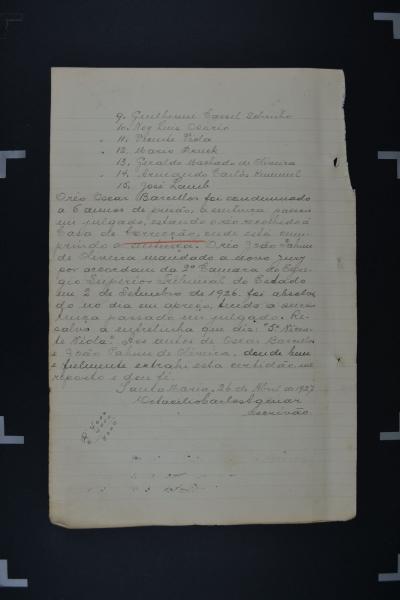 9. Guilherme Cassel Sobrinho
10. Roy Luis Osorio
11. Vicente Viola
12. Mario Druck
13. Geraldo Machado de Oliveira
14. Armando Carlos
15. José Lamb
O réo Oscar Barcellos foi condemnado
a 6 annos de prisão, a sentença passou
em julgado, estando o réo recolhido á
Casa de Correcção, onde está cum-
prindo a sentença. O réo João
de Oliveira mandado a novo jury
por accordam da 2ª Camara do Egre-
gio Superior Tribunal do Estado
em 2 de Setembro de 1926, foi absolvi-
do no dia em apreço, tendo a sen-
tença passado em julgado. Re-
salvo a entrelinha que diz: "5º Vicen-
te Viola". Dos autos de Oscar Barcellos
e João de Oliveira, donde bem
e fielmente extrahi esta certidão, me
reporto e dou fé.
Santa Maria, 26 de Abril de 1927
Escrivão